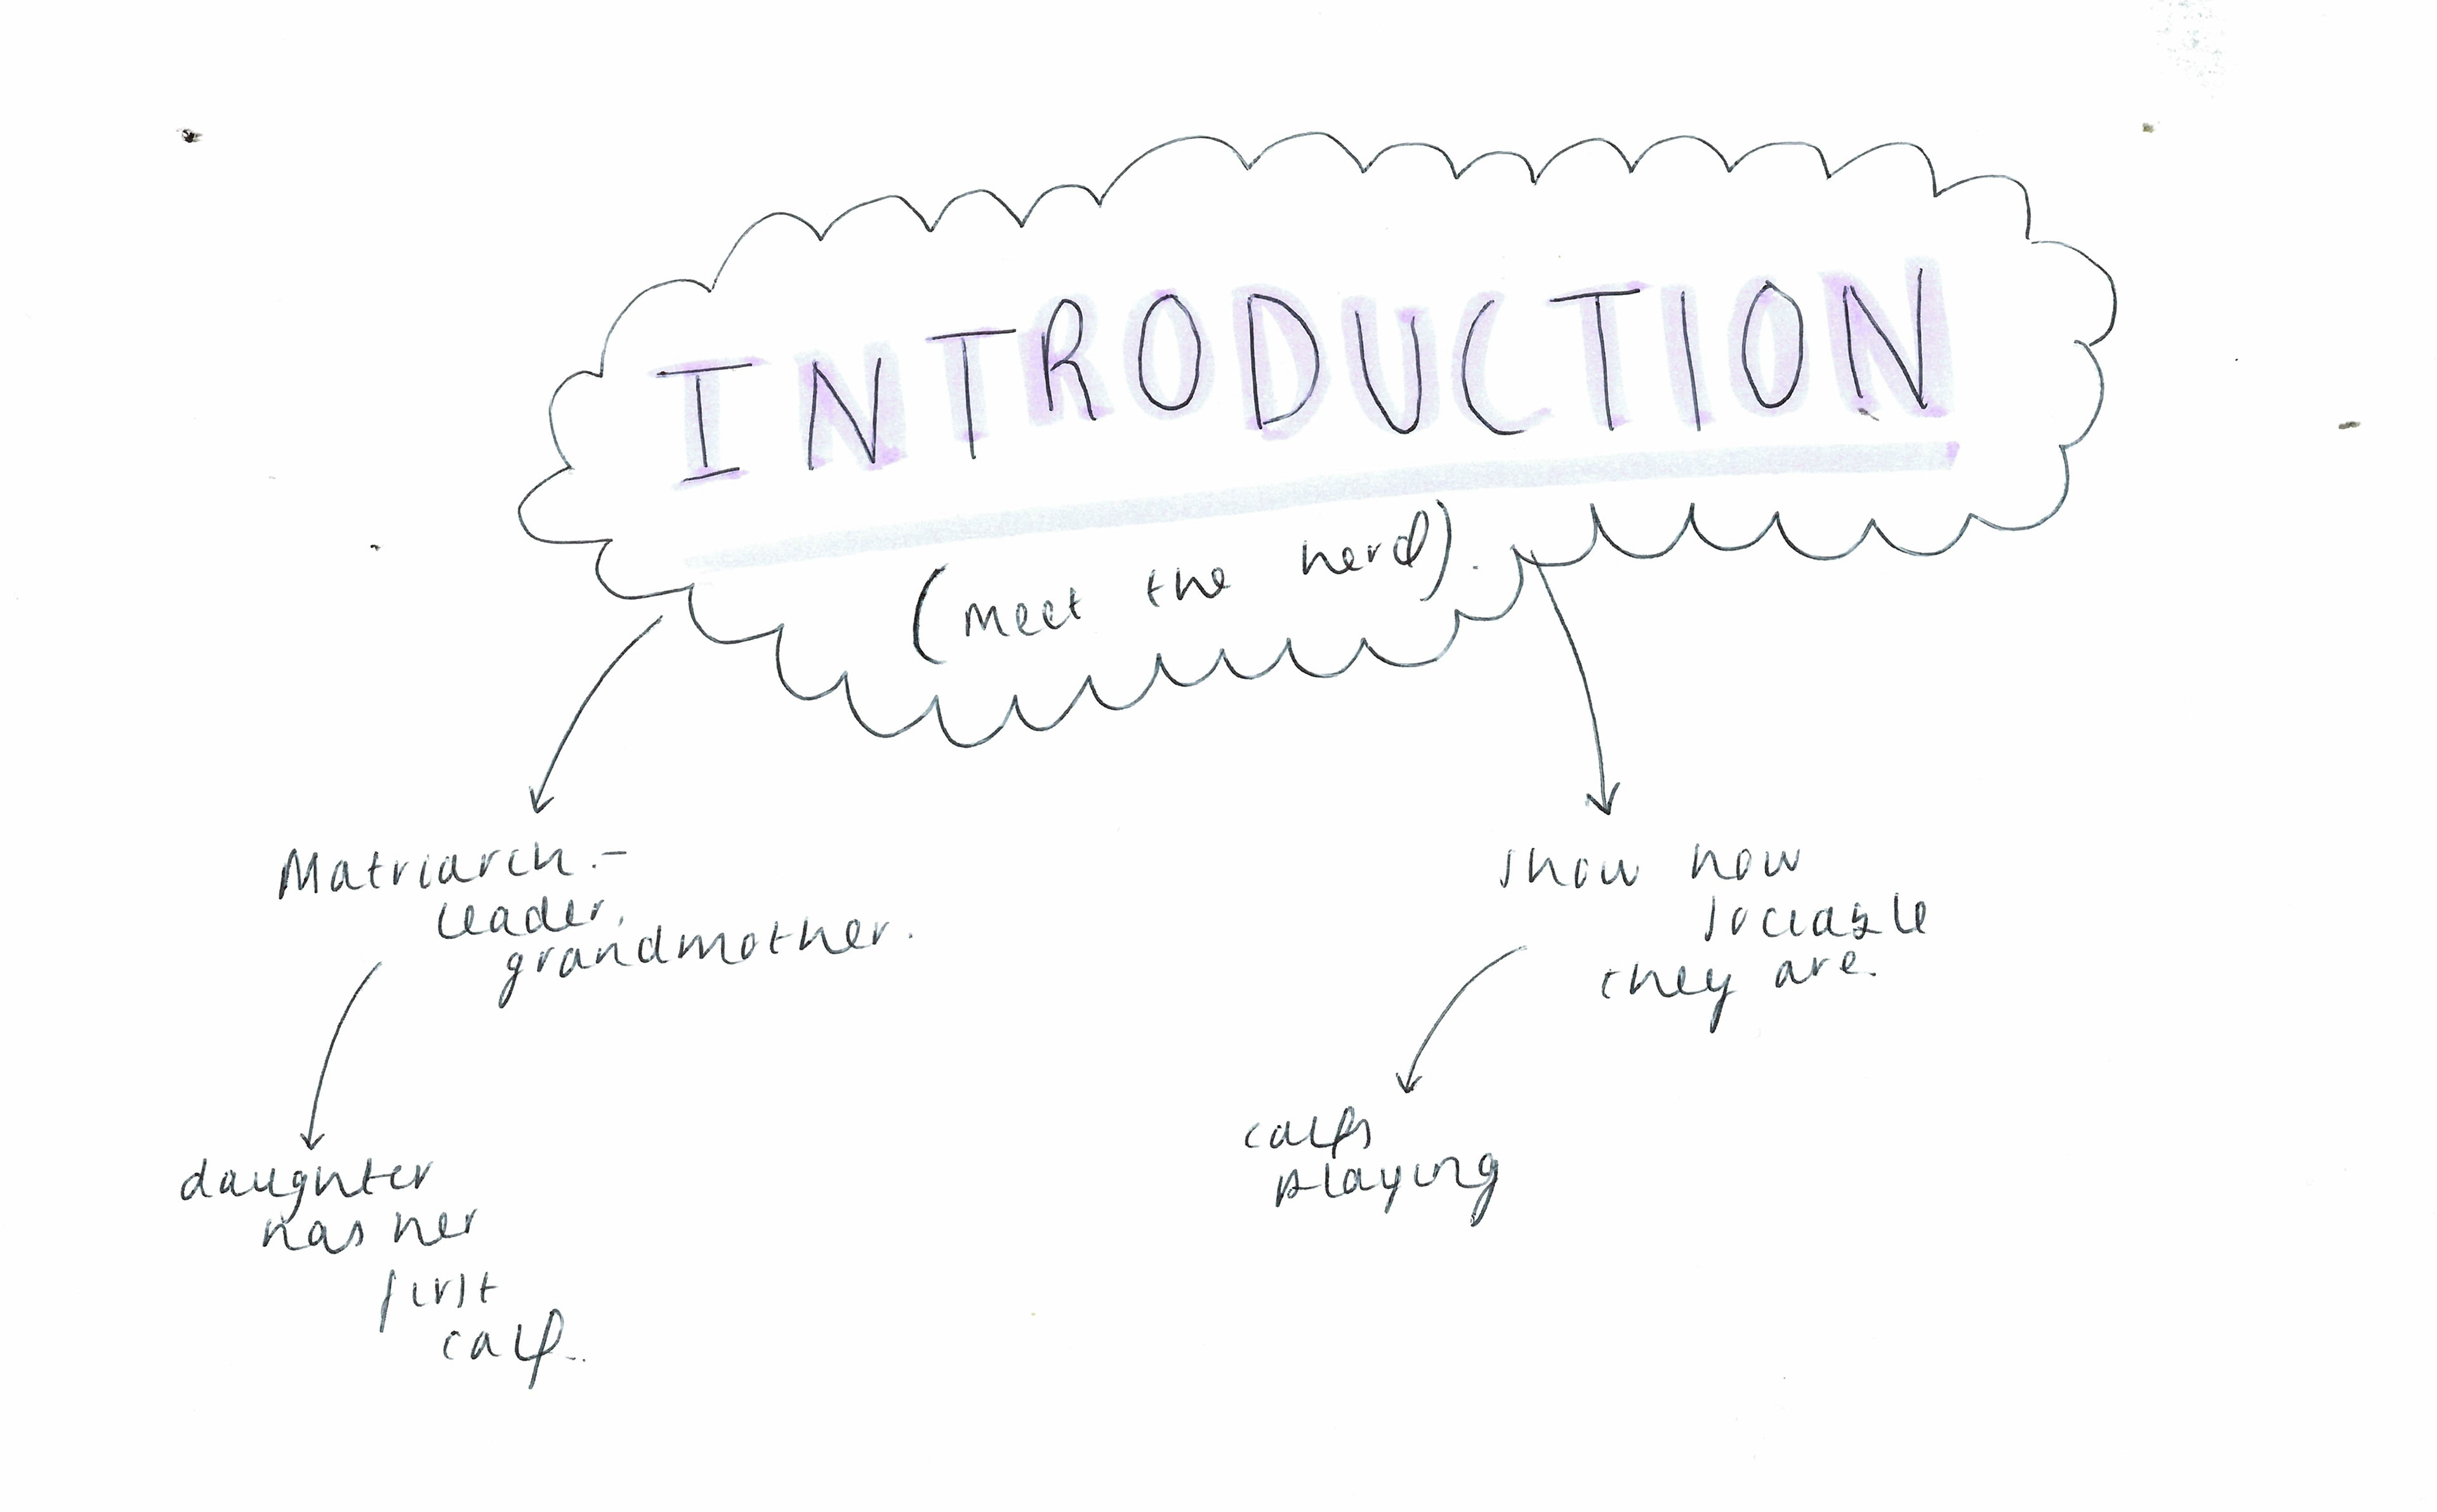 INTRODUCTION
(Meet the herd).
Matriarch.-
leader,
grandmother.
daughter
has her
first
calf.
show how
sociable
they are.
calfs
playing